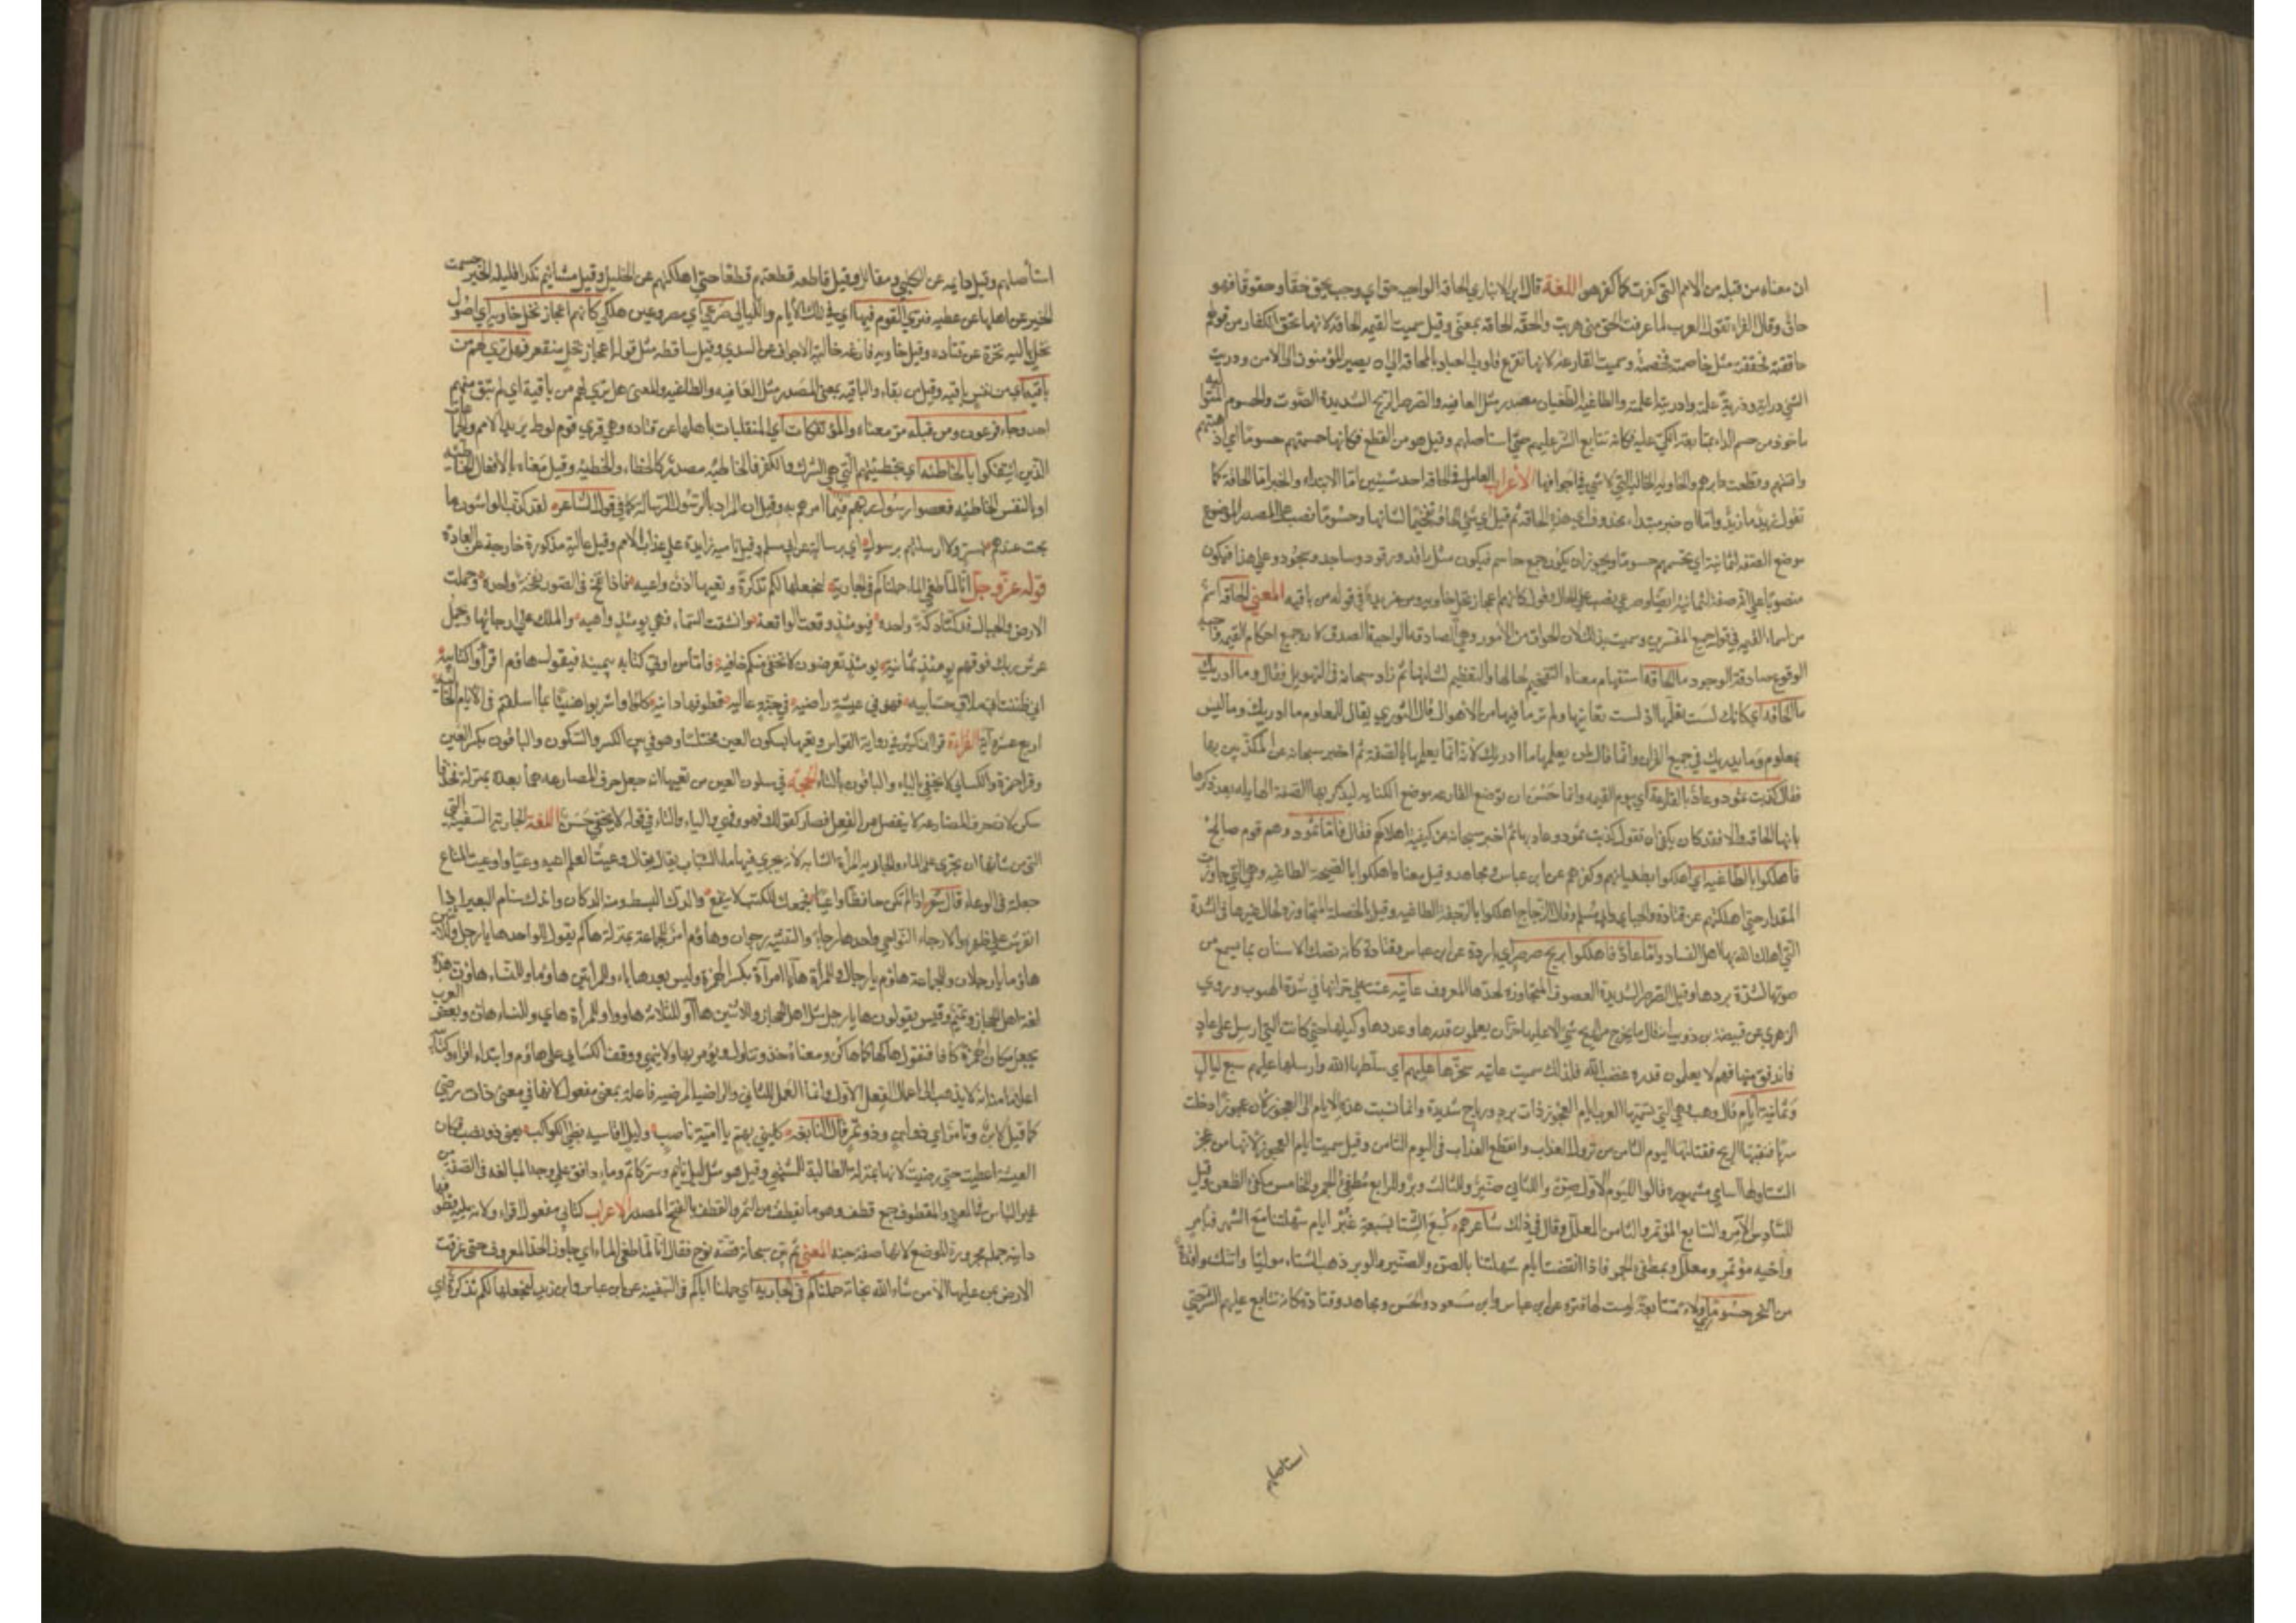 ان معناه من قبله من الامم التي كفرت كما كفر هوا اللغة قال ابن الانباري الحاقه الواجب حق اي وجب يحق حقا وحقوقا فهو
حاق وقال الفراء تقول العرب لما عرفت الحق مني هربت والحقه الحاقه بمعنى وقيل سميت القيمه الحاقه لانها تحق الكفار من قولهم
حاققته فحققته مثل خاصمته فخصمته وسميت القارعه لانها تقرع قلوب العباد بالمخافه الى ان يصير المؤمنون الى الامن ودريت
الشي دراية ودرية علمته وادريته اعلمته والطاغيه الطغيان مصدر مثل العافيه والصرصر الريح الشديدة الصوت والحسوم المتواليه
ماخوذ من حسم الداء بمتابعة الكي عليه فكانه تتابع الشر عليهم حتى استاصلهم وقيل هو من القطع فكانها حسمتهم حسوما اي اذهبتهم
وافنتهم وقطعت دابرهم والخاويه الخاليه التي لا شي في اجوافها الاعراب العامل في الحاقه احد شيئين اما الابتداء والخبر ما الحاقة كما
تقول زيد ما زيد واما ان خبر مبتداء محذوف اي هذه الحاقه ثم قيل اي شي الحاقه تفخيما لشانها وحسوما نصب على المصدر الموضوع
موضع الصفه لثمانية اي تحسمهم حسوما ويجوز ان يكون جمع حاسم فيكون مثل راقد ورقود وساجد وسجود وعلى هذا فيكون
منصوبا على انه صفة لثمانية ايضا وصرعي نصب على الحال وقوله كانهم اعجاز نخل خاويه من مزيدة في قوله من باقيه المعني الحاقه اسم
من اسماء القيمه في قول جميع المفسرين وسميت بذلك لان الحواق من الامور وهي الصادقه الواجبة الصدق لان جميع احكام القيمه واجبه
الوقوع صادقة الوجود ما الحاقه استفهام معناه التفخيم لحالها والتعظيم لشانها ثم زاد سبحانه في التهويل فقال وما ادريك
ما الحاقه اي كانك لست تعلمها اذ لست تعاينها ولم تر ما فيها من الاهوال قال الثوري يقال للمعلوم ما ادريك وما ليس
بمعلوم وما يدريك في جميع القران وانما قال لمن يعلمها ما ادريك لانه انما يعلمها بالصفة ثم اخبر سبحانه عن المكذبين بها
فقال كذبت ثمود وعاد بالقارعة اي بيوم القيمه وانما حسن ان توضع القارعه موضع الكنايه ليذكر بها الصفه الهايله بعد ذكرها
بانها الحاقه والا فقد كان يكفي ان تقول كذبت ثمود وعاد بها ثم اخبر سبحانه عن كيفية اهلاكهم فقال فاما ثمود وهم قوم صالح
فاهلكوا بالطاغيه اي اهلكوا بطغيانهم وكفرهم عن ابن عباس ومجاهد وقيل معناه اهلكوا بالصيحة الطاغيه وهي التي جاوزت
المقدار حتى اهلكتهم عن قتادة والجبايي وابي مسلم وقال الزجاج اهلكوا بالرجفة الطاغيه وقيل بالخصلة المتجاوزه لحال غيرها في الشدة
التي اهلك الله بها اهل الفساد واما عاد فاهلكوا بريح صرصر اي باردة عن ابن عباس وقتادة كانه تصطك الاسنان بما يسمع من
صوتها لشدة بردها وقيل الصرصر الشديدة العصوف المتجاوزه لحدها المعروف عاتيه عتت على خزانها في شدة الهبوب وروي
الزهري عن قبيصة بن ذويب انه قال ما يخرج من الريح شي الا عليها خزان يعلمون قدرها وعددها وكيلها حتى كانت التي ارسل على عاد
فاندفق منها فهم لا يعلمون قدره غضب الله فلذلك سميت عاتيه سخرها عليهم اي سلطها الله وارسلها عليهم سبع ليال
وثمانية ايام قال وهب وهي التي تسميها العرب ايام العجوز ذات برد ورياح شديدة وانما نسبت هذه الايام الى العجوز لان عجوزا دخلت
سربا فتبعتها الريح فقتلتها اليوم الثامن من نزول العذاب وانقطع العذاب في اليوم الثامن وقيل سميت ايام العجوز لانها من عجز
الشتا ولها اسامي مشهوره قالوا لليوم الاول صن وللثاني صنبر وللثالث وبر وللرابع مطفئ الجمر وللخامس مكفئ الظعن وقيل
للسادس الآمر وللسابع المؤتمر وللثامن المعلل وقال في ذلك شاعرهم كسع الشتا بسبعة غبر ايام شهلتنا مع الشهر فبآمر
واخيه مؤتمر ومعلل وبمطفئ الجمر فاذا انقضت ايام شهلتنا بالصن والصنبر والوبر ذهب الشتاء موليا واتتك وافدة
من النحر حسوما اي ولاء متتابعة ليست لها فتره عن ابن عباس وابن مسعود والحسن ومجاهد وقتادة كانه تتابع عليهم الشر حتى
استاصلهم
استأصلهم وقيل دايمه عن الكلبي ومقاتل وقيل قاطعه قطعتهم قطعا حتى اهلكتهم عن الخليل وقيل مشائيم نكدا قليله الخير حسمت
الخير عن اهلها عن عطيه فتري القوم فيها اي في تلك الايام والليالي صرعي اي مصروعين هلكي كانهم اعجاز نخل خاويه اي اصول
نخل باليه نخرة عن قتاده وقيل خاويه فارغه خالية الاجواف عن السدي وقيل ساقطه مثل قوله اعجاز نخل منقعر فهل تري لهم من
باقيه اي من نفس باقيه وقيل من بقاء والباقيه بمعنى المصدر مثل العافيه والطاغيه والمعنى هل تري لهم من باقية اي لم تبق منهم
احد وجاء فرعون ومن قبله مر معناه والمؤتفكات اي المنقلبات باهلها عن قتاده وهي قري قوم لوط يريد الامم والجماعات
الذين ايتفكوا بالخاطئه اي بخطيئتهم التي هي الشرك والكفر فالخاطئه مصدر كالخطاء والخطئه وقيل معناه بالافعال الخاطئه
او بالنفس الخاطئه فعصوا رسول ربهم فيما امرهم به وقيل ان المراد بالرسول الرساله كما في قول الشاعر لقد كذب الواشون ما
بحت عندهم بسر ولا ارسلتهم برسول اي برسالة عن ابي مسلم وقيل رابيه زايدة على عذاب الامم وقيل عالية مذكورة خارجة عن العادة
قوله عز وجل انا لما طغى الماء حملناكم في الجارية لنجعلها لكم تذكرة وتعيها اذن واعيه فاذا نفخ في الصور نفخة واحدة وحملت
الارض والجبال فدكتا دكة واحده فيومئذ وقعت الواقعة وانشقت السماء فهي يومئذ واهيه والملك على ارجائها ويحمل
عرش ربك فوقهم يومئذ ثمانية يومئذ تعرضون لا تخفى منكم خافية فاما من اوتي كتابه بيمينه فيقول هاؤم اقرأوا كتابيه
اني ظننت اني ملاق حسابيه فهو في عيشة راضيه في جنة عاليه قطوفها دانيه كلوا واشربوا هنيئا بما اسلفتم في الايام الخاليه
اربع عشرة آية القراءة قرا ابن كثير في رواية القواس وتعيها بسكون العين مختلسا وهو في بين الكسر والسكون والباقون بكسر العين
وقرا حمزة والكسائي لا يخفى بالياء والباقون بالتاء الحجة في سكون العين من تعيها انه جعل حرف المضارعه مع ما بعده بمنزلة فخذ فا
سكن لان حرف المضارعه لا ينفصل من الفعل فصار كقولك فهو وهي والياء والتاء في قوله لا يخفي حسن اللغة الجارية السفينة التي
التي من شأنها ان تجري على الماء والجاريه المرأة الشابه لانه يجري فيها ماء الشباب يقال وعيت العلم اعيه وعيا واوعيت المتاع
جعلته في الوعاء قال شعر اذا لم تكن حافظا واعيا فجمعك للكتب لا ينفع والدك البسط ومنه الدكان واندك سنام البعير اذا
انفرش على ظهره والارجاء النواحي واحدها رجا والتثنيه رجوان وهاؤم امر للجماعة بمنزلة هاكم يقول للواحد ها يا رجل وللاثنين
هاؤما يا رجلان وللجماعة هاؤم يا رجال وللمرأة هاء يا امرأة بكسر الهمزة وليس بعدها ياء وللمرأتين هاؤما وللنساء هاؤن هذه
لغة اهل الحجاز وتميم وقيس يقولون ها يا رجل مثل اهل الحجاز وللاثنين هاآ وللثلاثه هاووا وللمرأة هاي وللنساء هان وبعض العرب
يجعل مكان الهمزة كافا فتقول هاك هاكما هاكن ومعناه خذ وتناول ويؤمر بها ولا ينهي ووقف الكسائي على هاؤم وابتداء اقراءوا كتابيه
اعلاما منه انه لا يذهب الى اعمال الفعل الاول وانما العمل للثاني والراضيه المرضيه فاعله بمعنى مفعوله لانها في معنى ذات رضي
كما قيل لابن وتامر اي ذو لبن وذو تمر قال النابغه كليني لهم يا اميمة ناصب وليل اقاسيه بطئ الكواكب يعني ذو نصب فكان
العيشه اعطيت حتى رضيت لانها بمنزلة الطالبة للشهي وقيل هو مثل ليل نايم وسر كاتم وماء دافق على وجه المبالغه في الصفة من
غير التباس في المعنى والقطوف جمع قطف وهو ما يقطف من الثمر والقطف بالفتح المصدر الاعراب كتابي مفعول اقراء ولانه يليه قطوفها
دانيه جمله مجرورة الموضع لانها صفة جنه المعني ثم بين سبحانه قصة نوح فقال انا لما طغى الماء اي جاوز الحد المعروف حتى غرقت
الارض بمن عليها الا من شاء الله نجاته حملناكم في الجاريه اي حملنا اباكم في السفينه عن ابن عباس وابن زيد لنجعلها لكم تذكرة اي